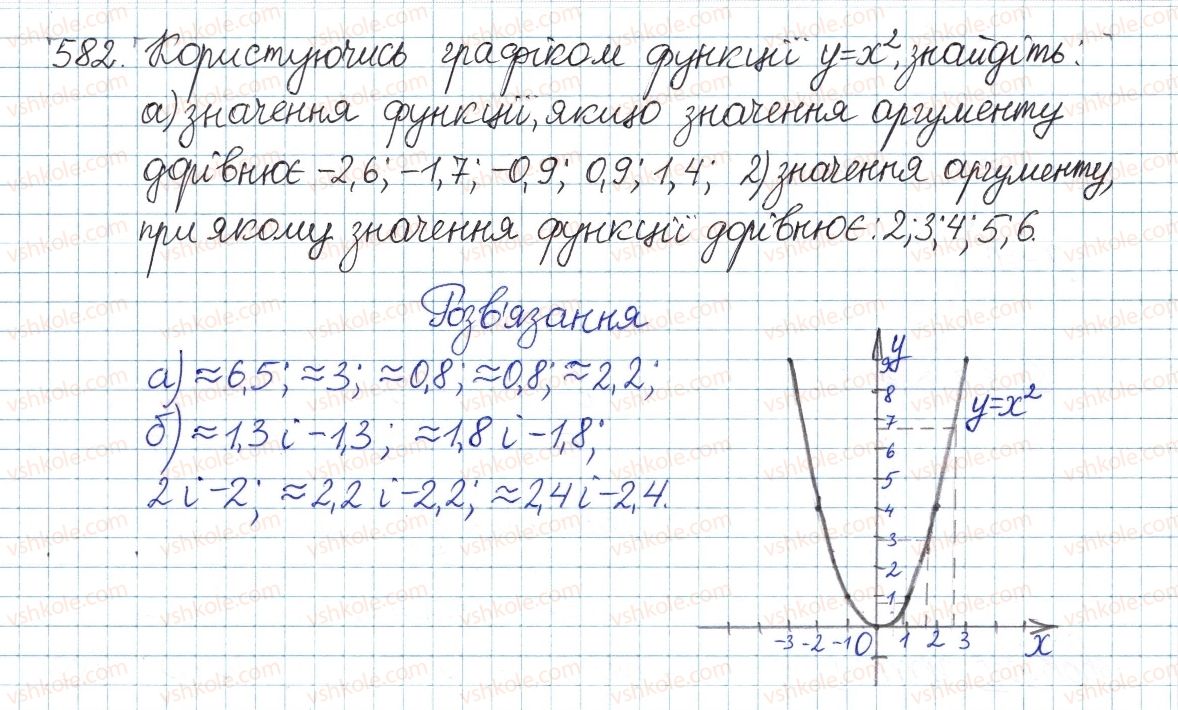 582. Користуючись графіком функції y=x², знайдіть:
а) значення функції, якщо значення аргументу
дорівнює -2,6; -1,7; -0,9; 0,9; 1,4; 2) значення аргументу,
при якому значення функції дорівнює: 2; 3; 4; 5; 6.
Розв'язання
а) ≈6,5; ≈3; ≈0,8; ≈0,8; ≈2,2;
б) ≈1,3 і -1,3; ≈1,8 і -1,8;
2 і -2; ≈2,2 і -2,2; ≈2,4 і -2,4.
y
9
8
y=x²
7
6
5
4
3
2
1
-3 -2 -1 0 1 2 3 x
vshkole.com